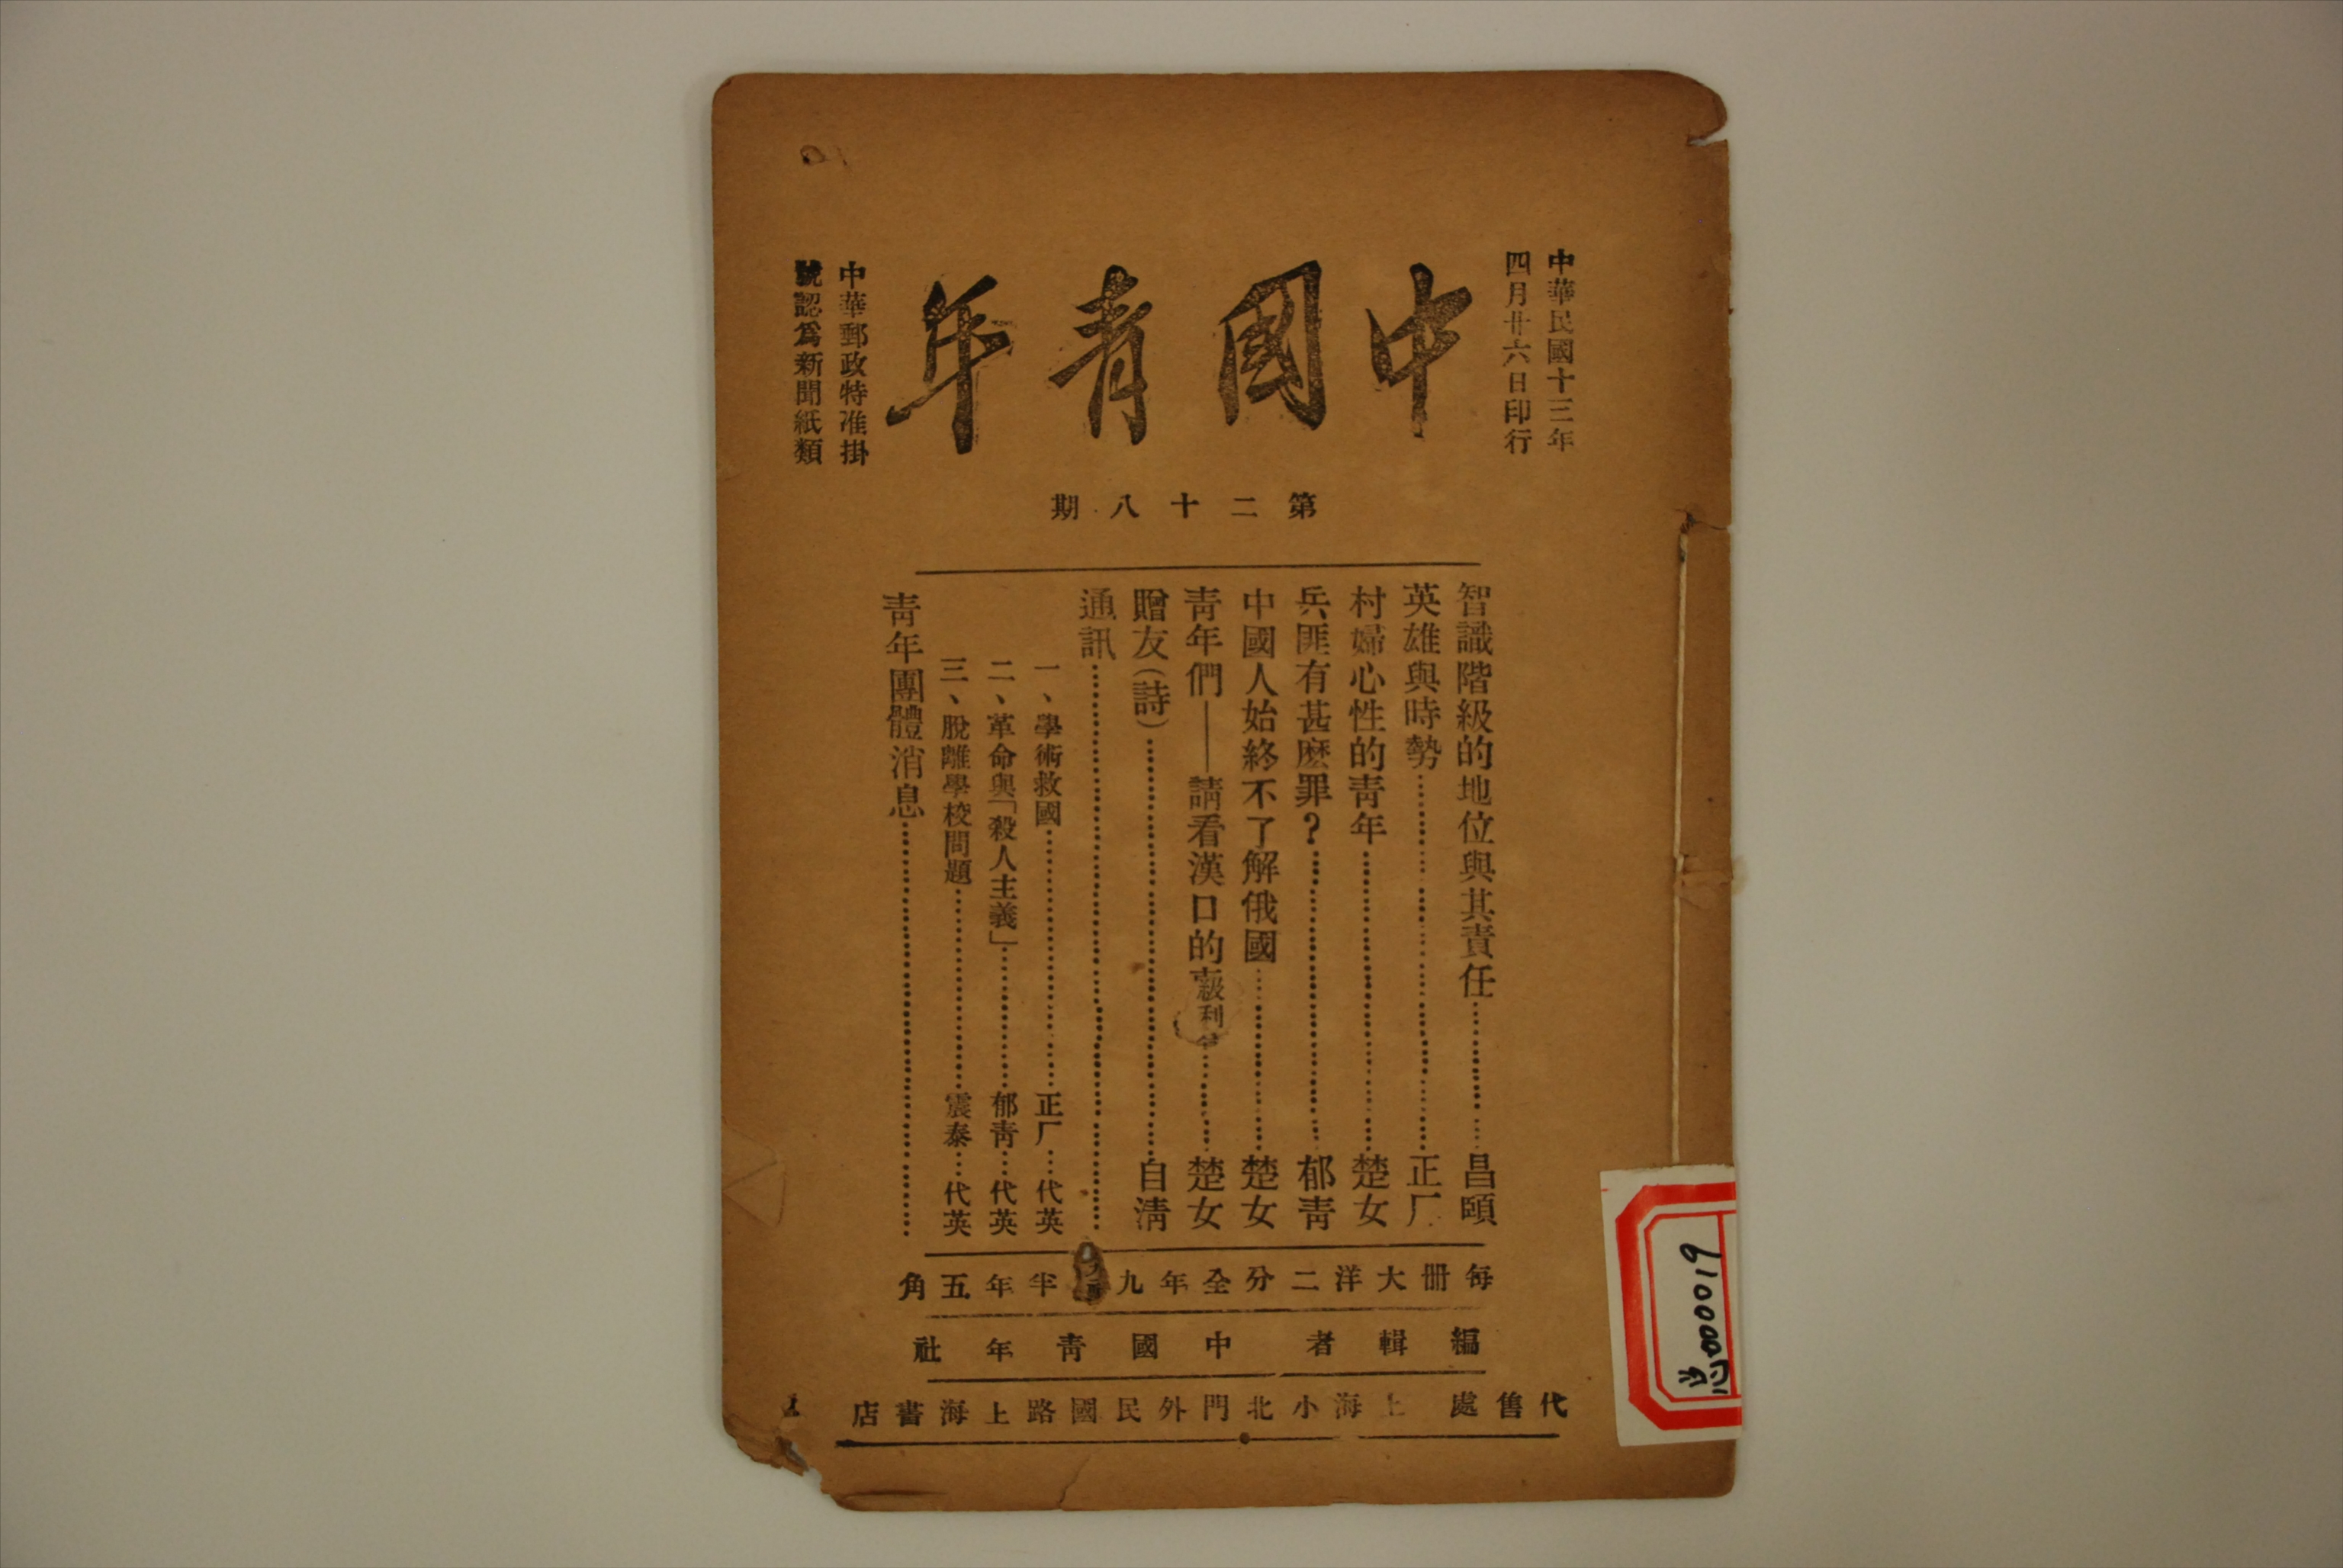 中華民國十三年
四月廿六日印行
中國青年
中華郵政特准掛
號認爲新聞紙類
第二十八期
智識階級的地位與其責任……昌頤
英雄與時勢……正厂
村婦心性的靑年……楚女
兵匪有甚麽罪？……郁靑
中國人始終不了解俄國……楚女
靑年們——請看漢口的……楚女
贈友（詩）……自淸
通訊……
一、學術救國……正厂…代英
二、革命與「殺人主義」……郁靑…代英
三、脫離學校問題……震泰…代英
靑年團體消息……
每冊大洋二分全年九 半年五角
編輯者 中國靑年社
代售處 上海小北門外民國路上海書店
000019